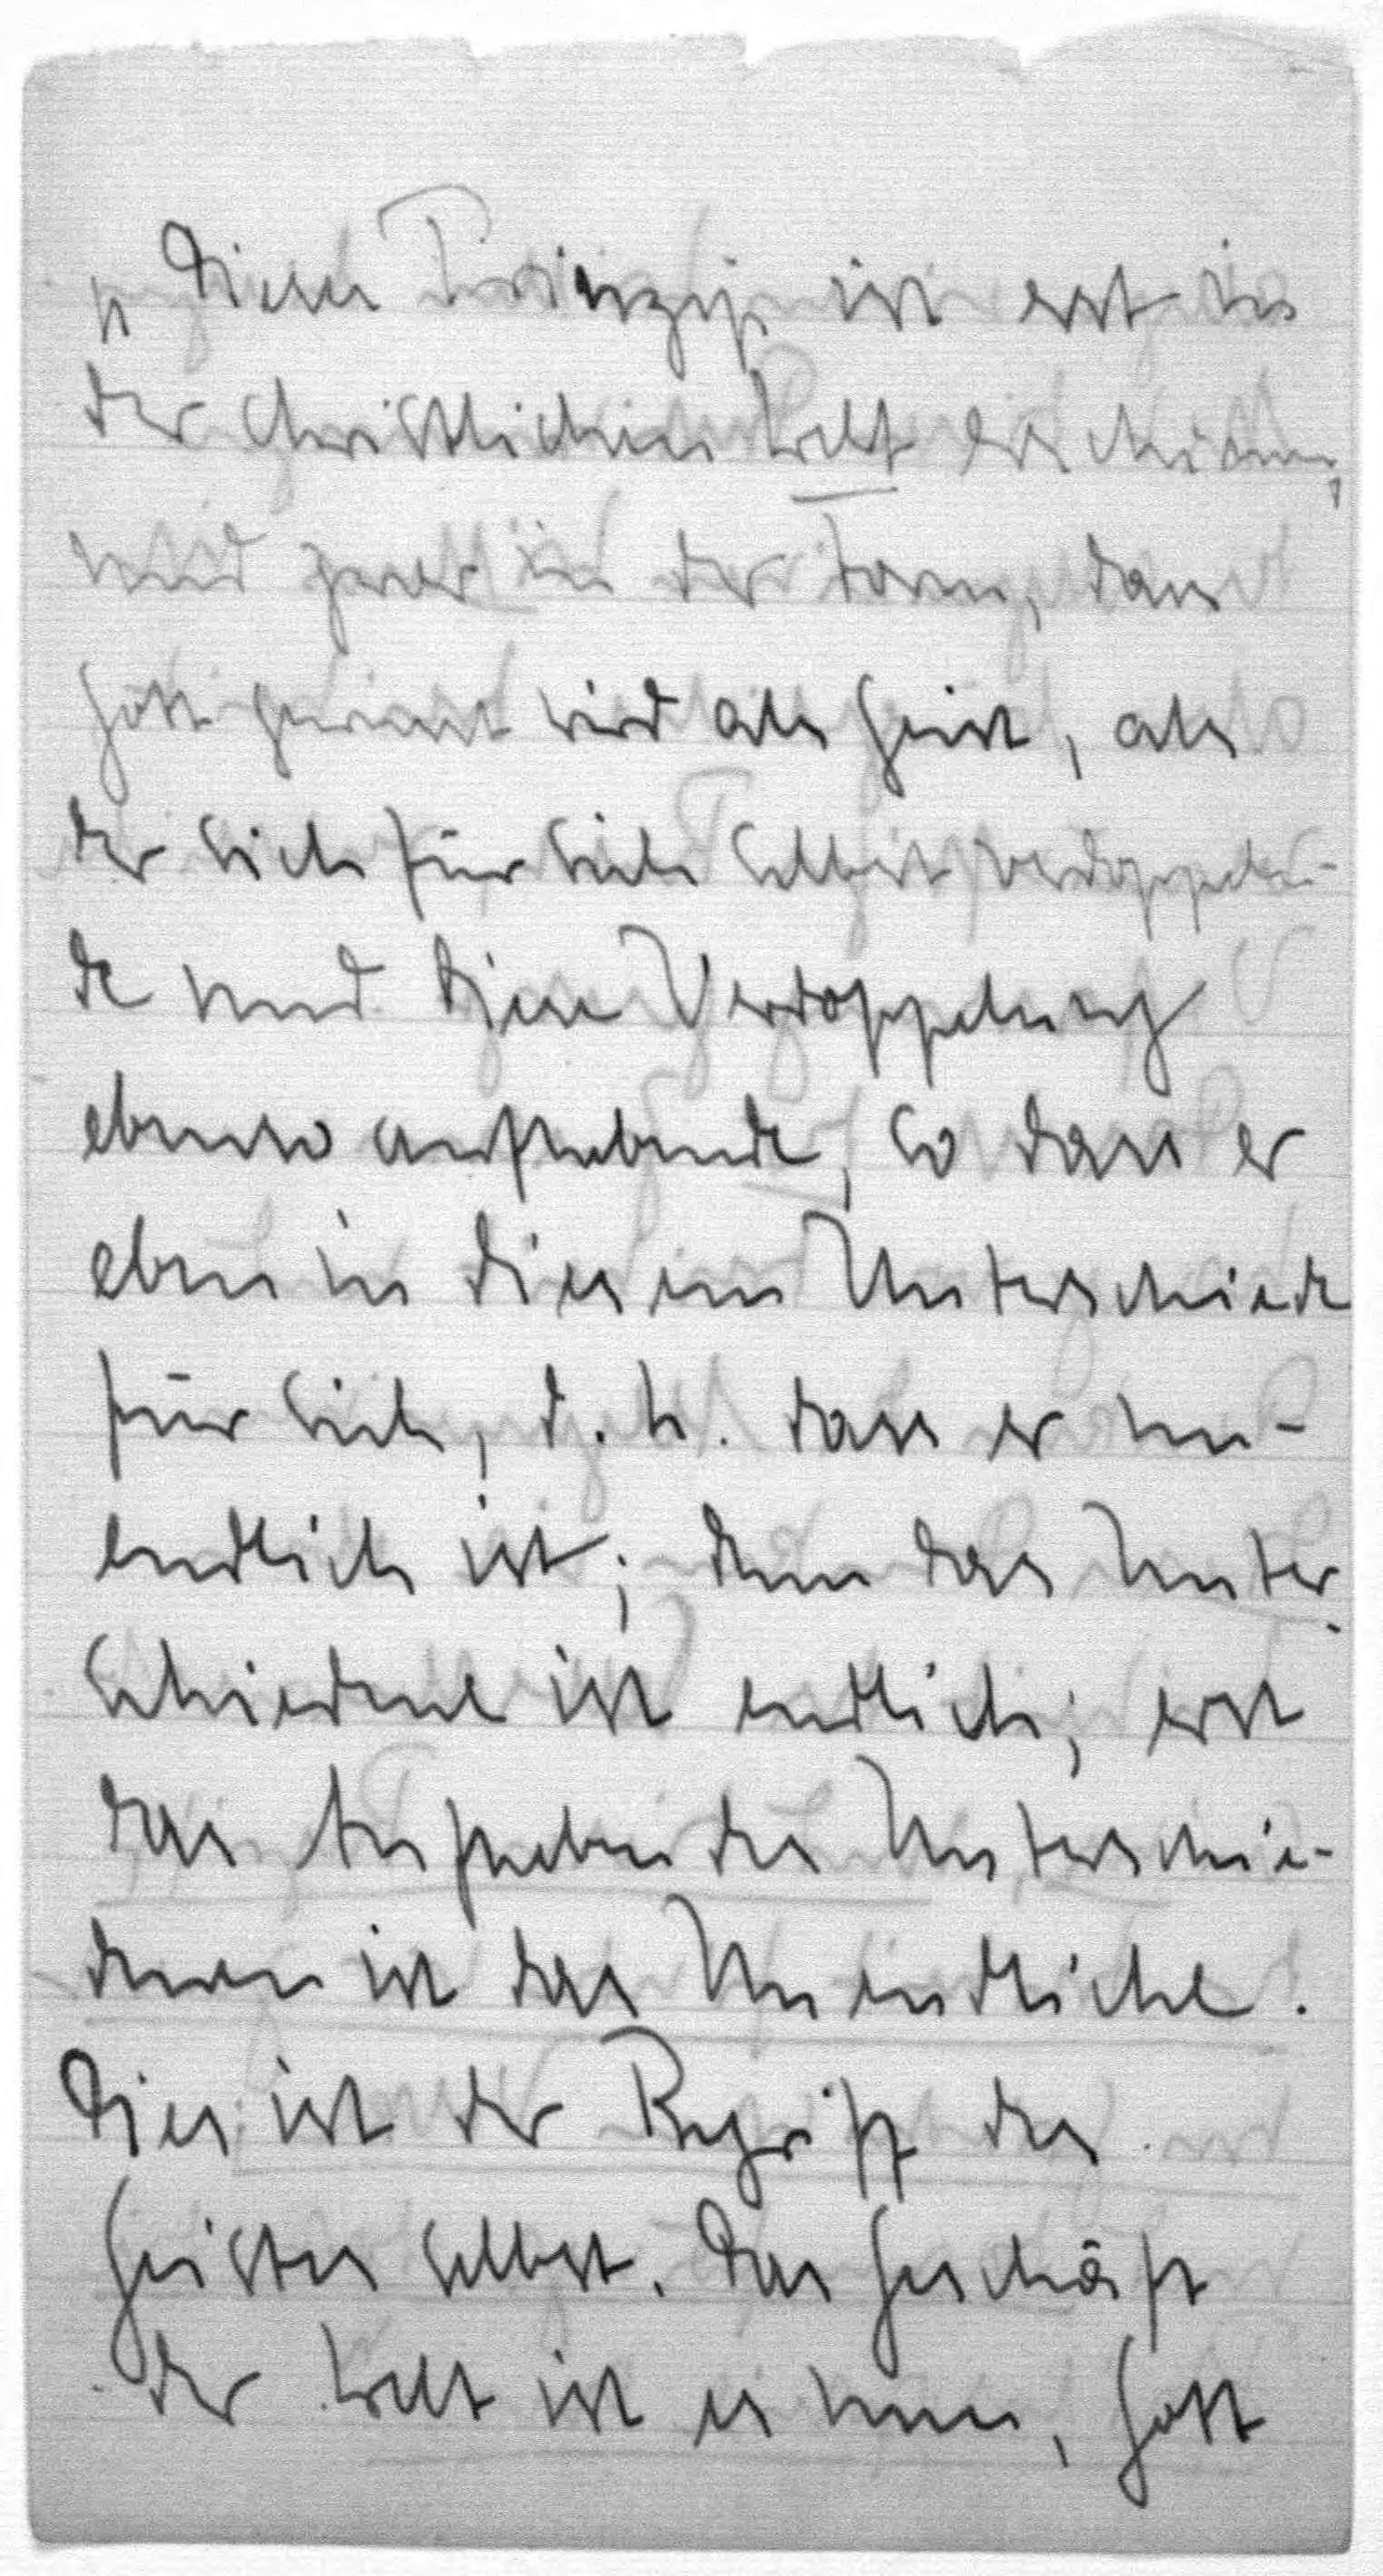 „Dieses Prinzip ist erst in
der christlichen Welt erschienen,
und zwar in der Form, dass
Gott gewusst wird als Geist, als
der sich für sich selbst verdoppeln-
de und diese Verdoppelung
ebenso aufhebende, so dass er
eben in diesem Unterschiede
für sich, d. h. dass er un-
endlich ist; denn das Unter-
schiedene ist endlich; erst
das Aufheben des Unterschie-
denen ist das Unendliche.
Dies ist der Begriff des
Geistes selbst. Das Geschäft
der Welt ist es nun, Gott